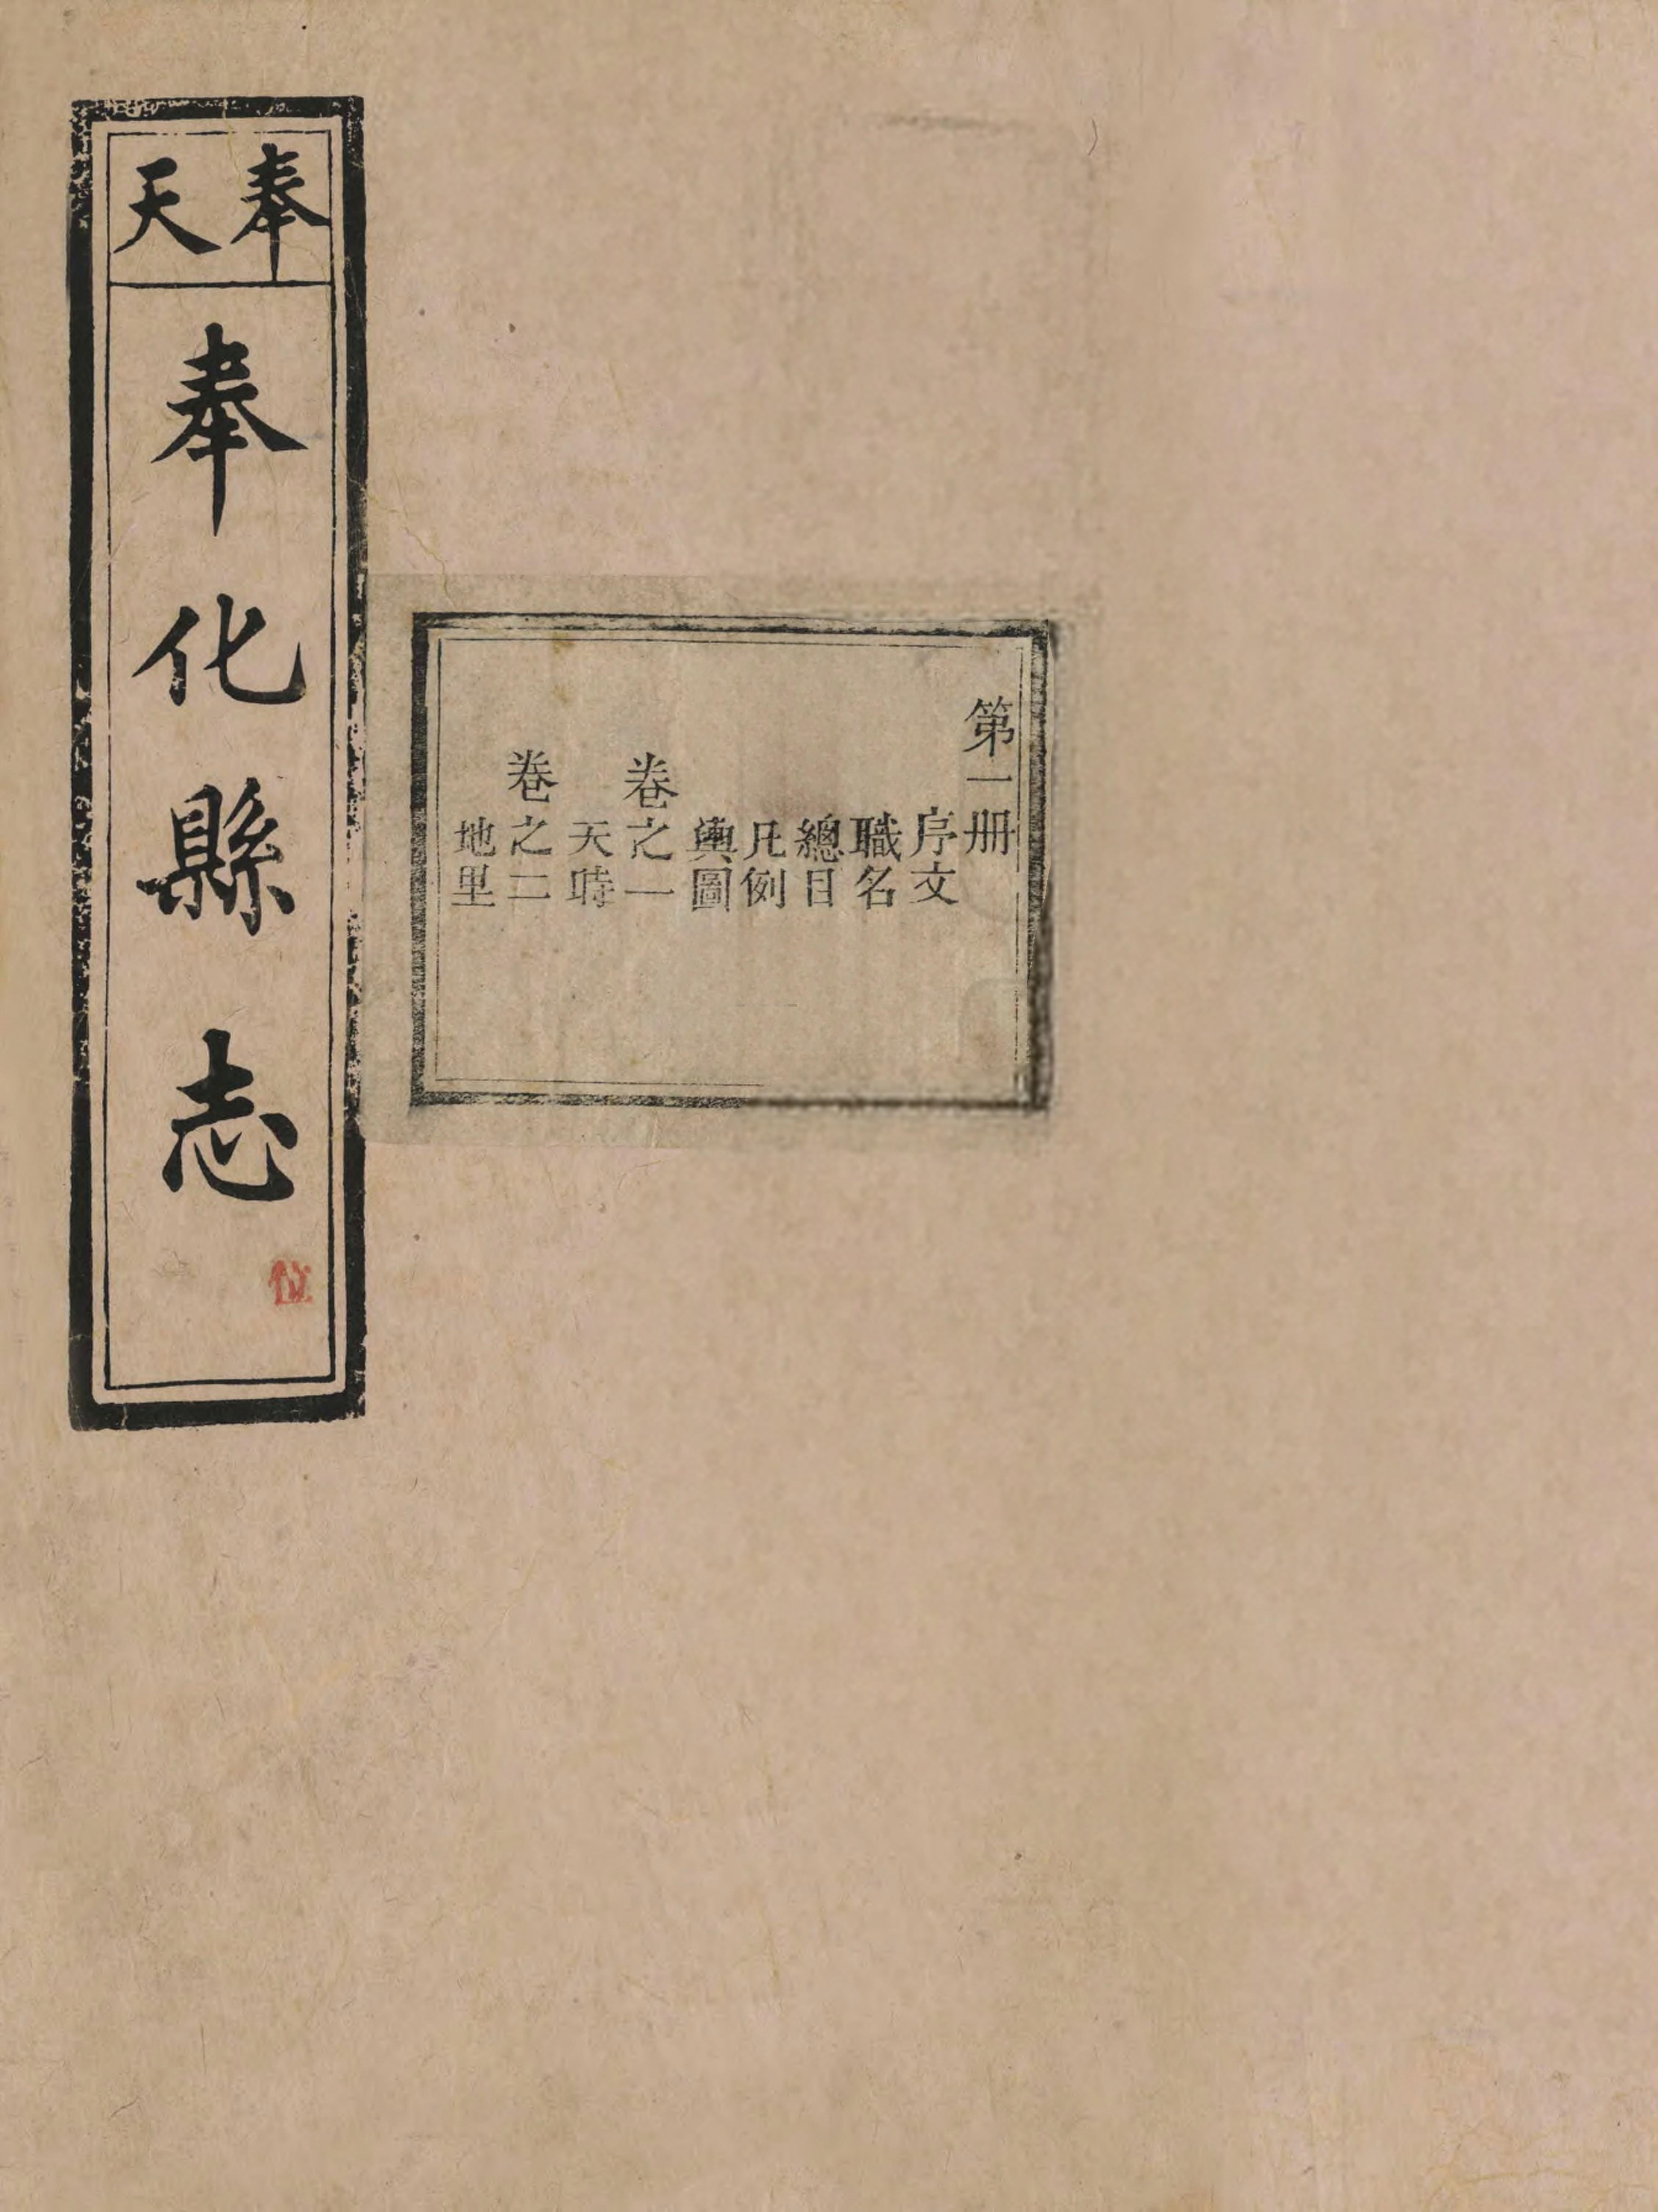 奉天
奉化縣志
第一册
序文
職名
總目
凡例
輿圖
卷之一
天時
卷之二
地里